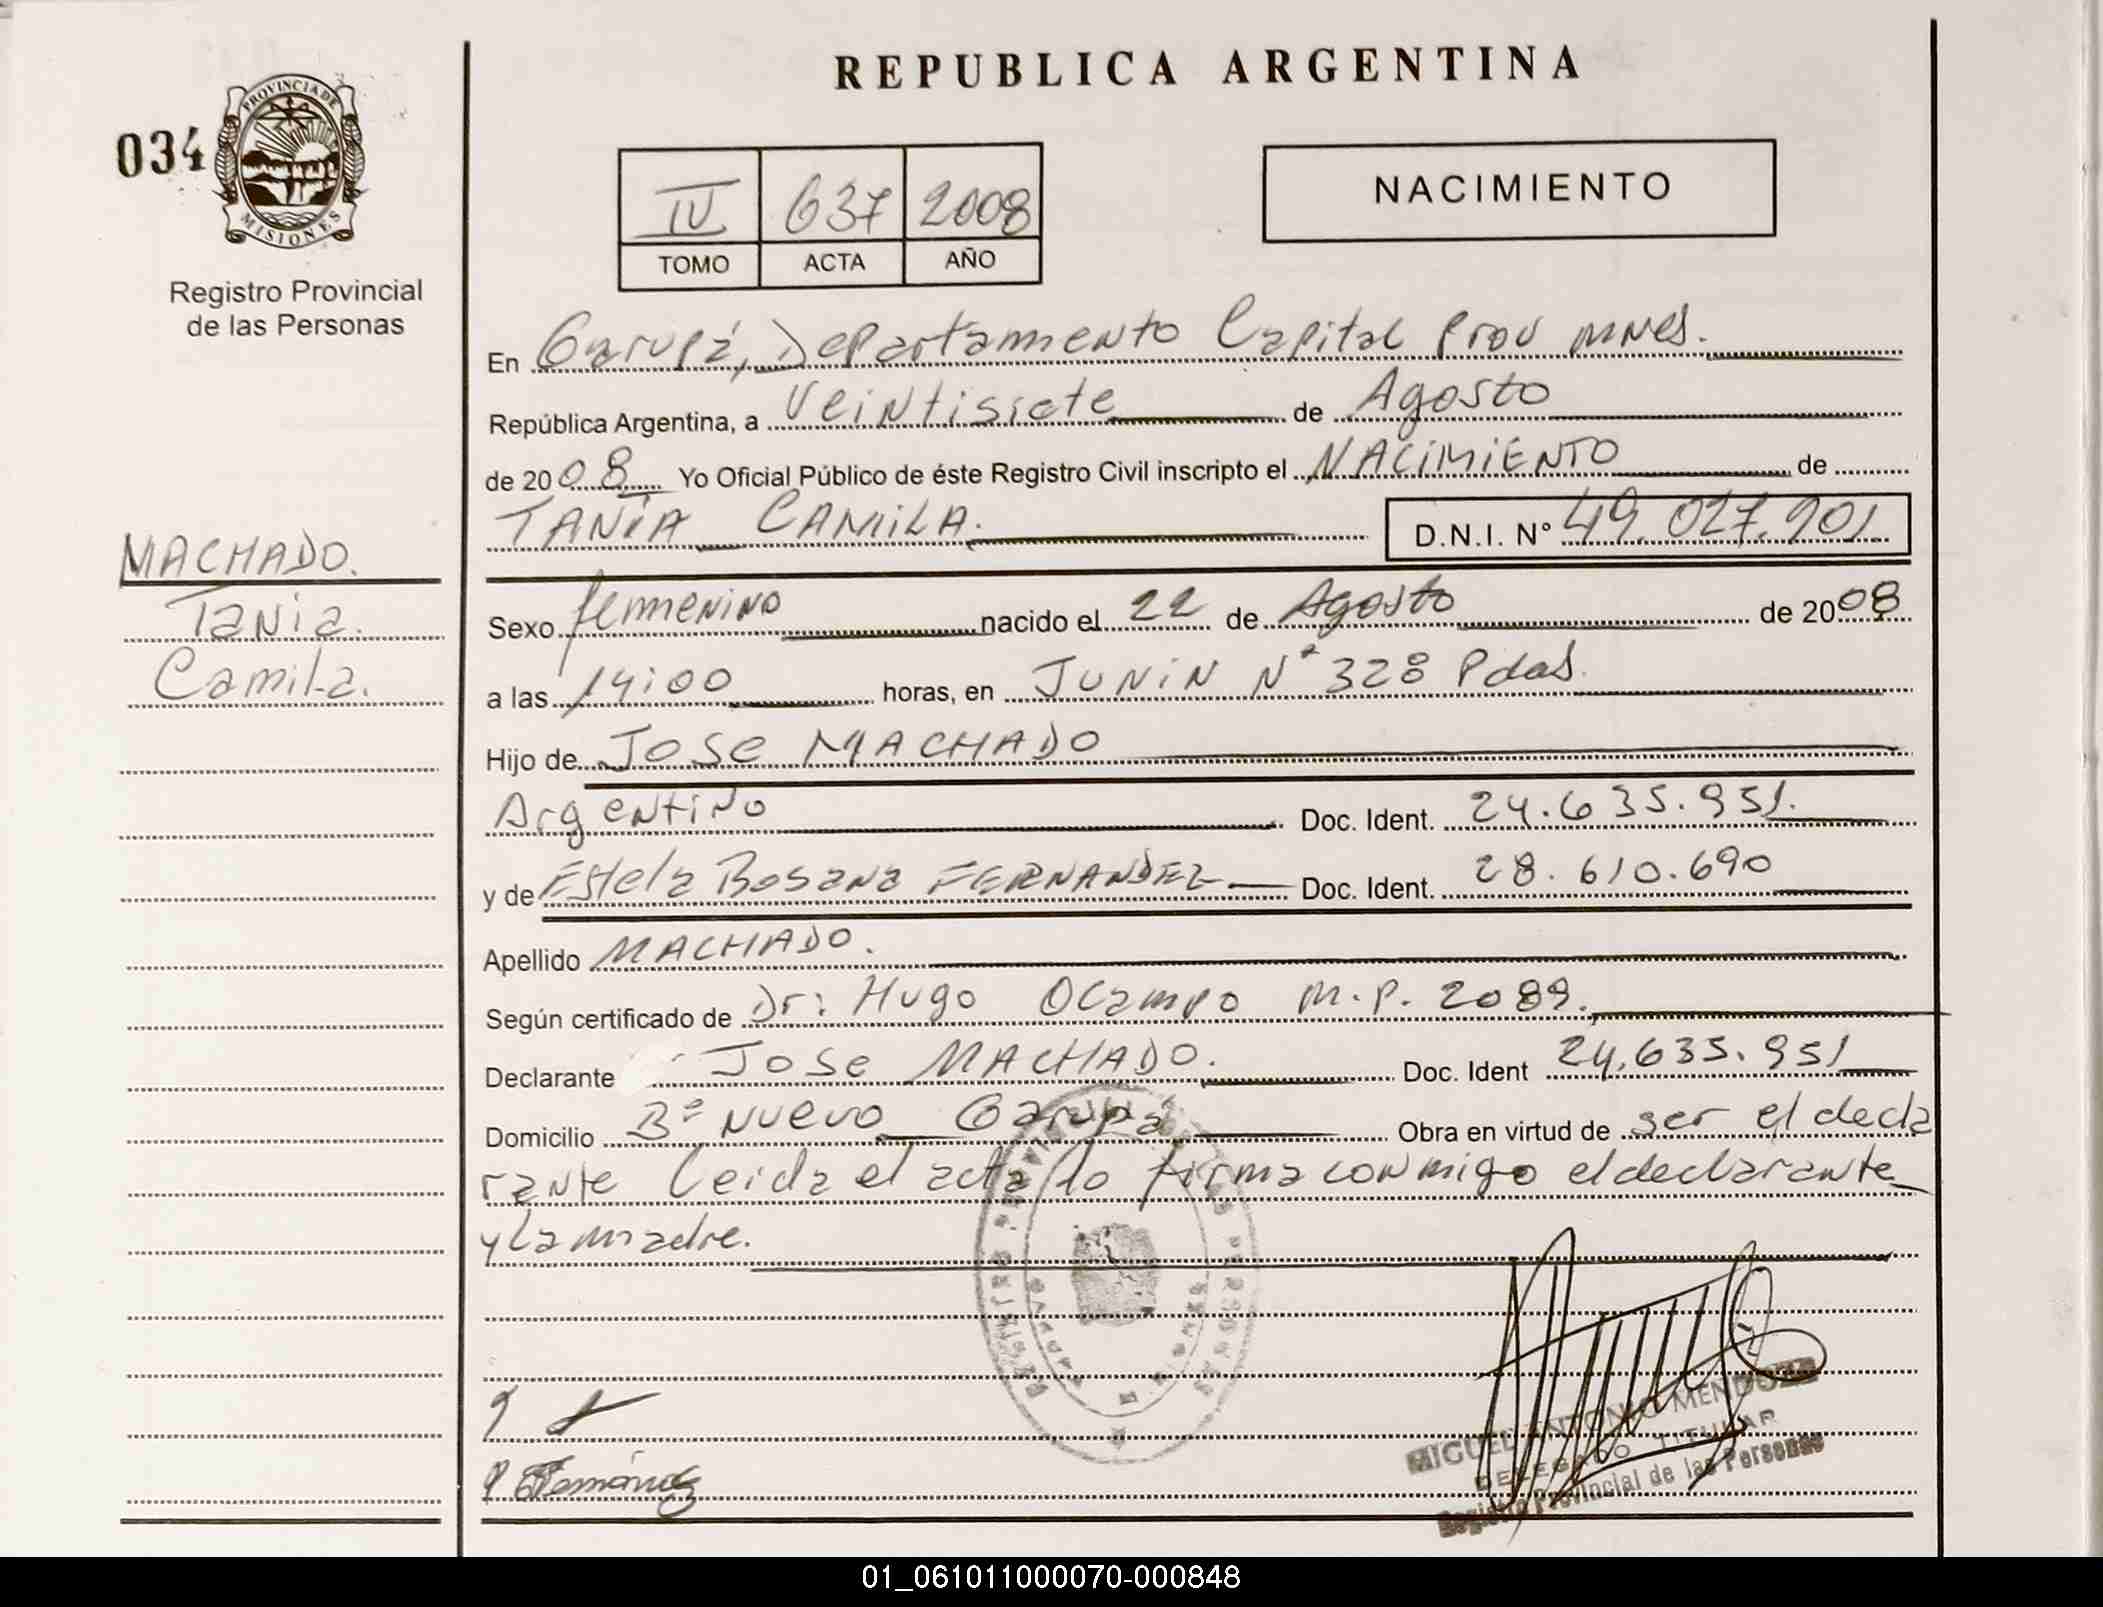 REPUBLICA ARGENTINA
034
PROVINCIA DE
MISIONES
Registro Provincial
de las Personas
IV 637 2008
TOMO ACTA AÑO
NACIMIENTO
En Garupá, Departamento Capital Prov mnes.
República Argentina, a Veintisiete de Agosto
de 2008 Yo Oficial Público de éste Registro Civil inscripto el NACIMIENTO de
TANIA CAMILA. D.N.I. Nº 49.027.901
MACHADO.
Tania.
Camila.
Sexo femenino nacido el 22 de Agosto de 2008
a las 14:00 horas, en JUNIN Nº 328 Pdas.
Hijo de JOSE MACHADO
Argentino Doc. Ident. 24.635.951.
y de Estela Rosana FERNANDEZ Doc. Ident. 28.610.690
Apellido MACHADO.
Según certificado de Dr: Hugo Ocampo M.P. 2089.
Declarante JOSE MACHADO. Doc. Ident 24.635.951
Domicilio Bº NUEVO Garupá Obra en virtud de ser el decla
rante leida el acta lo firma conmigo el declarante
y la madre.
MIGUEL ANTONIO MENDOZA
DELEGADO TITULAR
Registro Provincial de las Personas
01_061011000070-000848